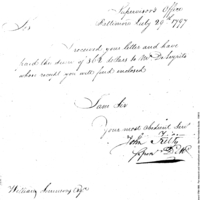 Supervisors Office
Baltimore July 29th 1797
Sir
I received your letter and have
paid the sum of dollars to Mr
whose receipt you will find enclosed
I am Sir
Your most obedient Serv
John Kilty
William Esqr